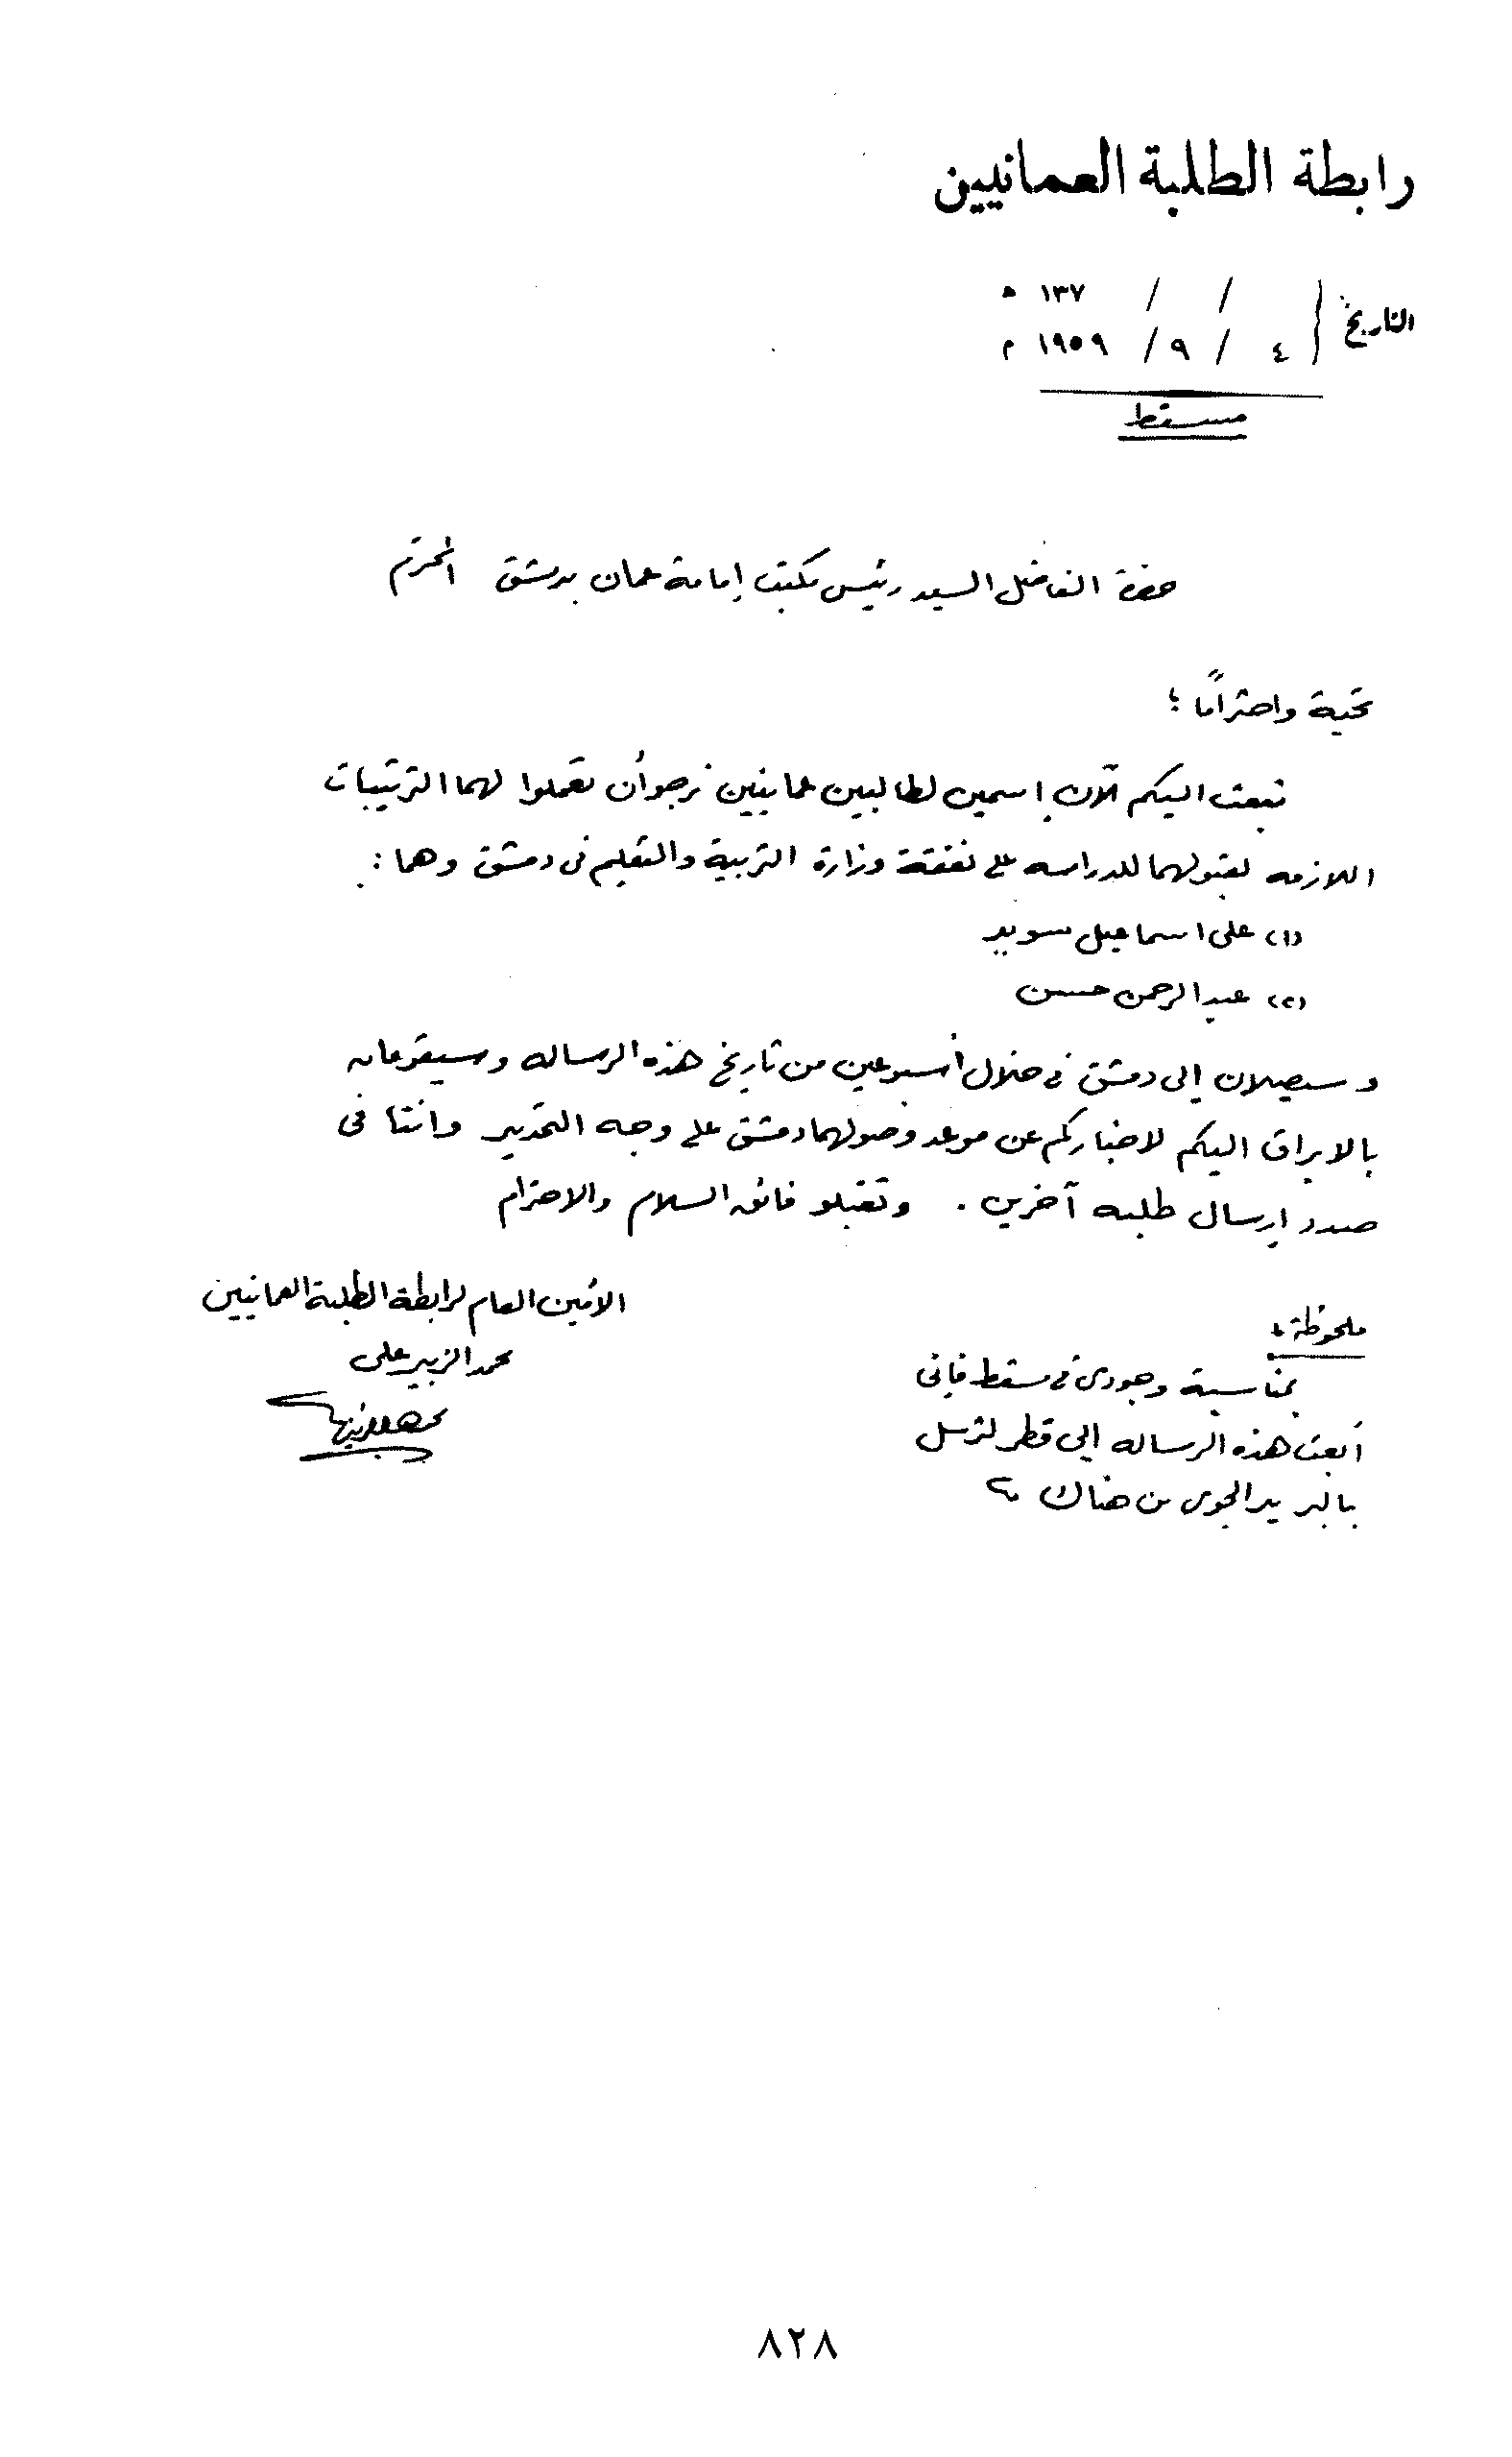 رابطة الطلبة العمانيين
التاريخ / / ١٣٧ ه
٤ / ٩ / ١٩٥٩ م
مسقط
حضرة الفاضل السيد رئيس مكتب إمامة عمان بدمشق المحترم
تحية واحتراماً ؛
نبعث اليكم الآن بإسمين لطالبين عمانيين نرجو أن تعملوا لهما الترتيبات
اللازمه لقبولهما للدراسه على نفقة وزارة التربية والتعليم في دمشق وهما :
(١) على اسماعيل سويد
(٢) عبد الرحمن حسن
وسيصلان إلى دمشق في خلال أسبوعين من تاريخ هذه الرساله وسيقومان
بالابراق اليكم لاخباركم عن موعد وصولهما دمشق على وجه التحديد وانتا فى
صدد ارسال طلبه آخرين . وتقبلو فائق السلام والاحترام
الأمين العام لرابطة الطلبة العمانيين
محمد الزبير على
ملحوظة :
بمناسبة وجودى في مسقط فإنى
أبعث هذه الرساله إلى قطر لترسل
بالبريد الجوى من هناك
٨٢٨